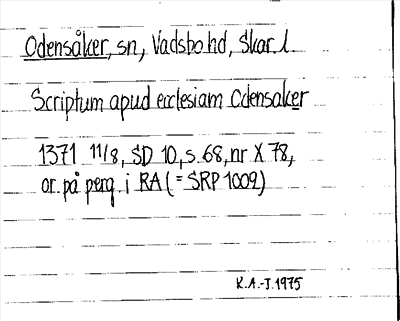 Odensåker, sn, Vadsbo hd, Skar. l.
Scriptum apud ecclesiam Odensaker
1371 11/8, SD 10, s. 68, nr X 78,
or. på perg. i RA (= SRP 1009)
K.A.-J. 1975